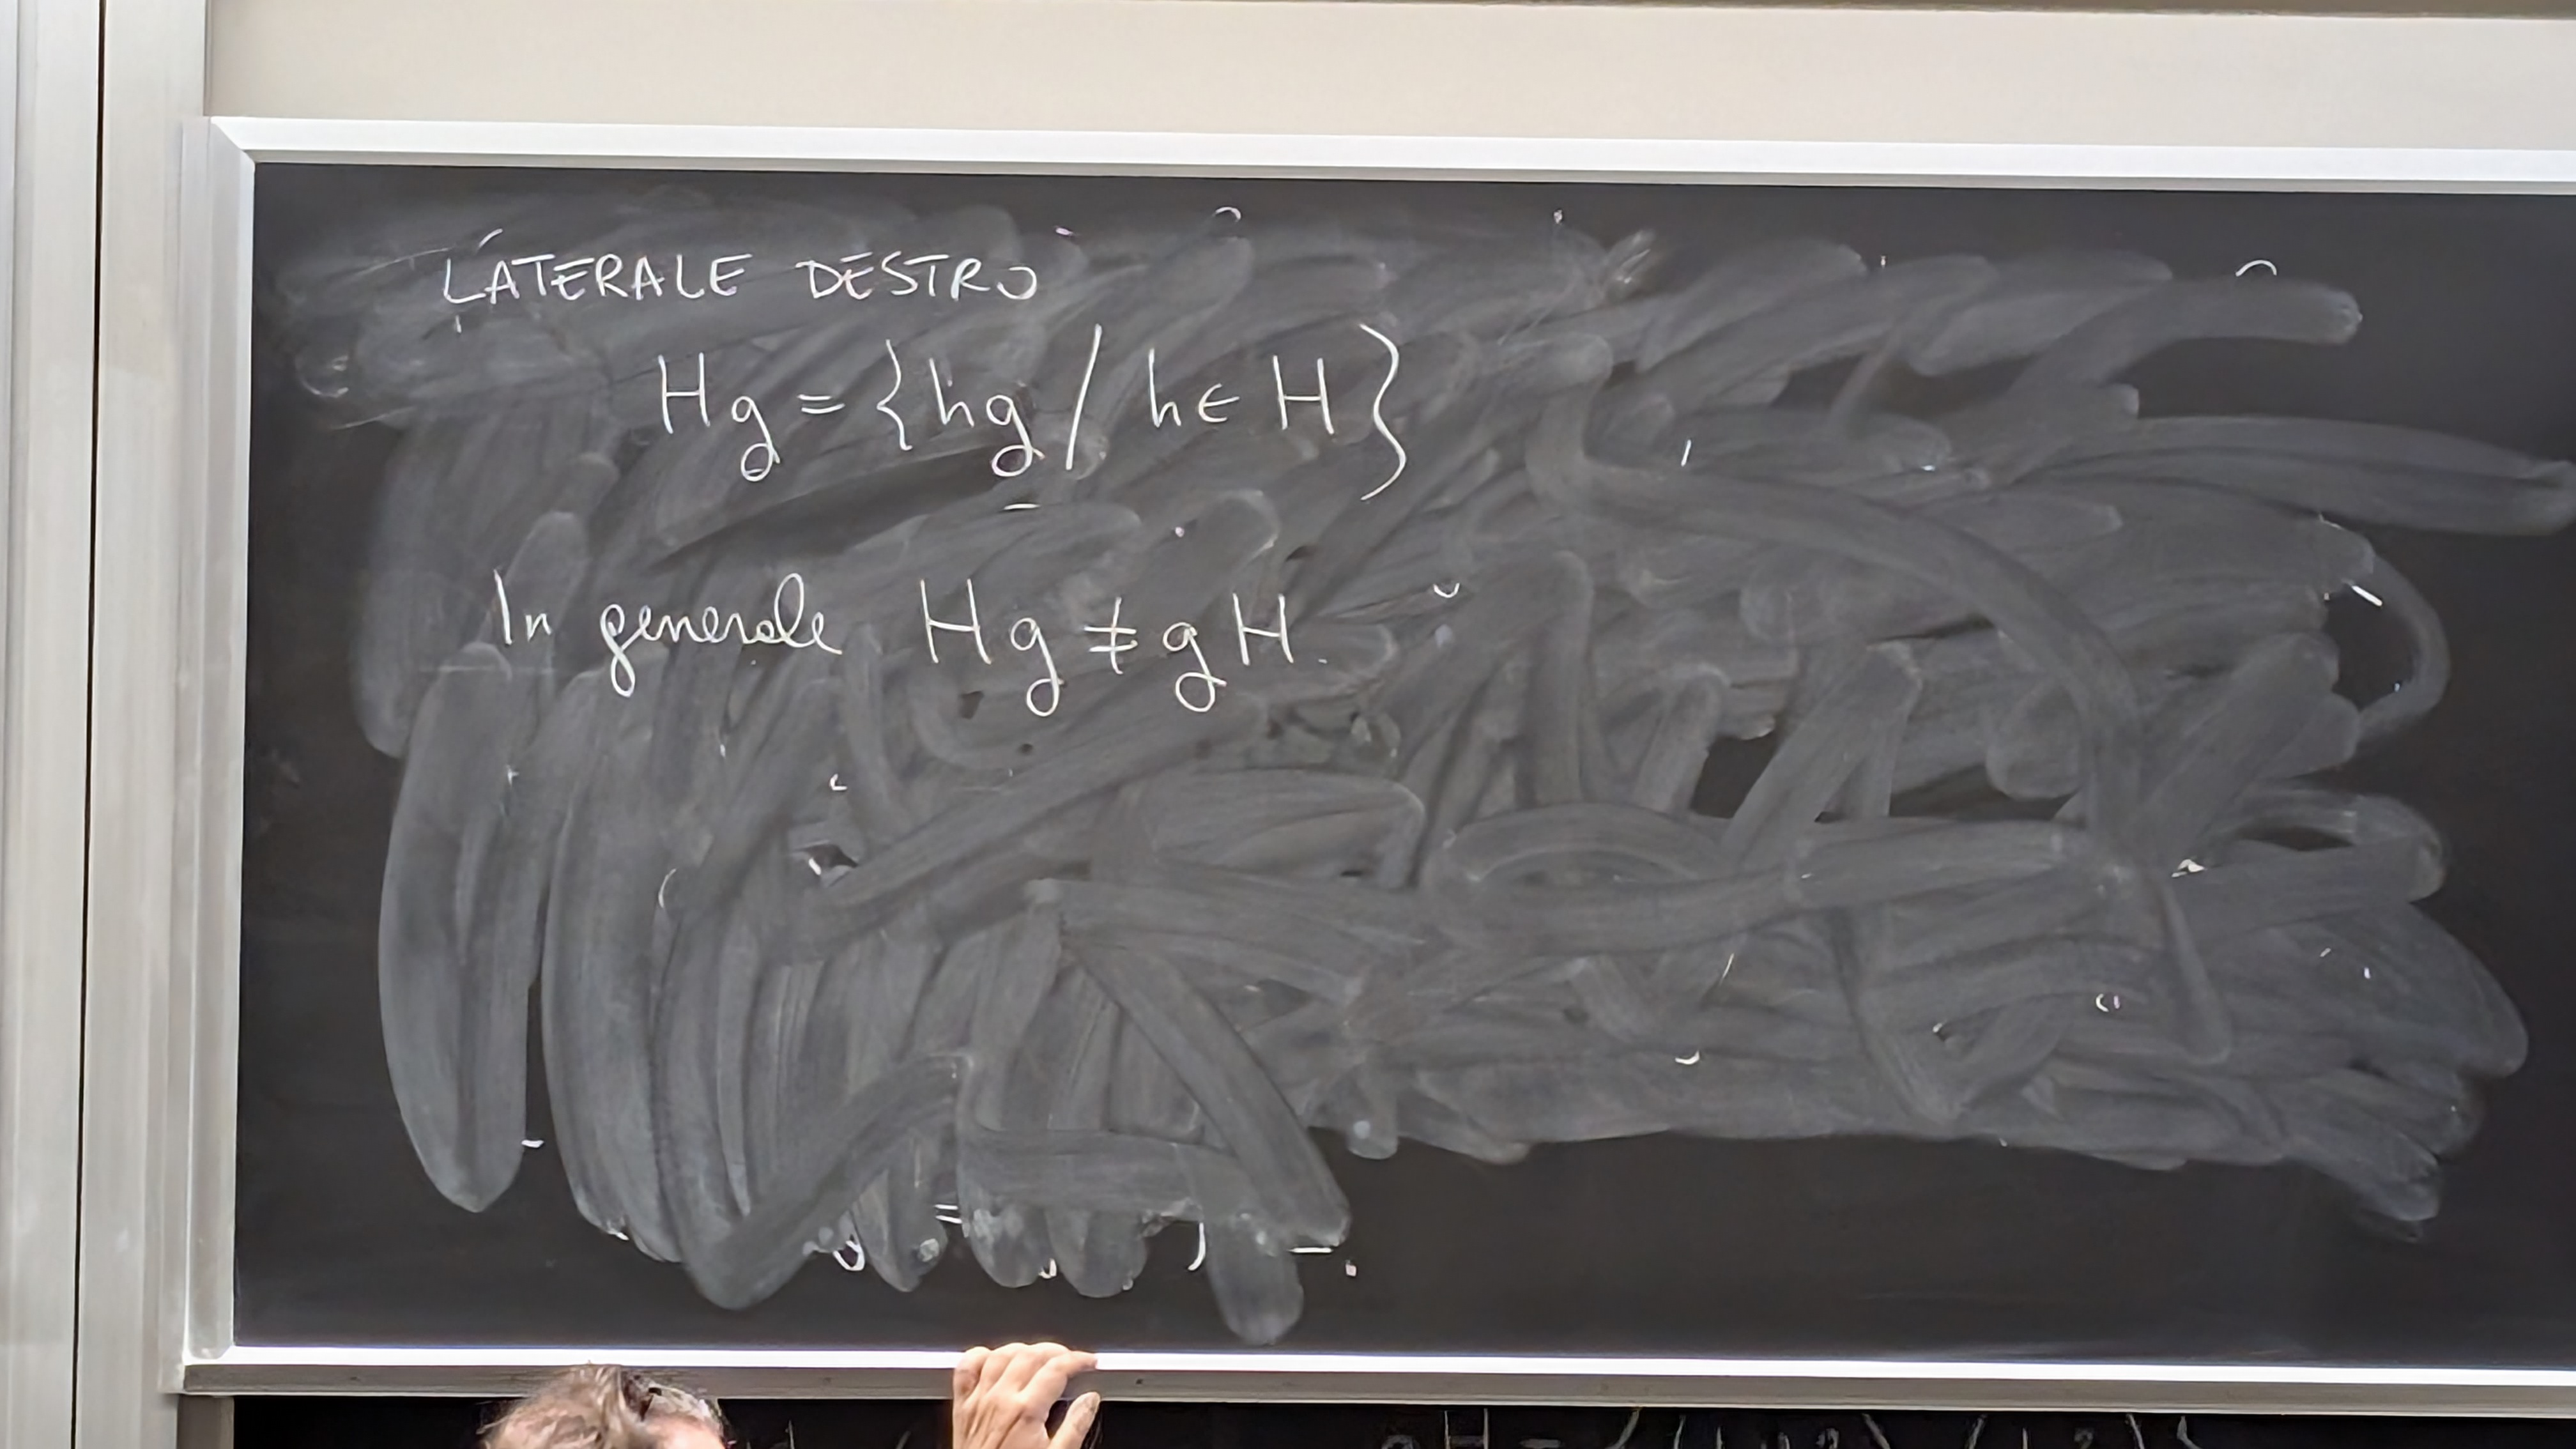 LATERALE DESTRO
Hg = {hg / h ∈ H}
In generale Hg ≠ gH.